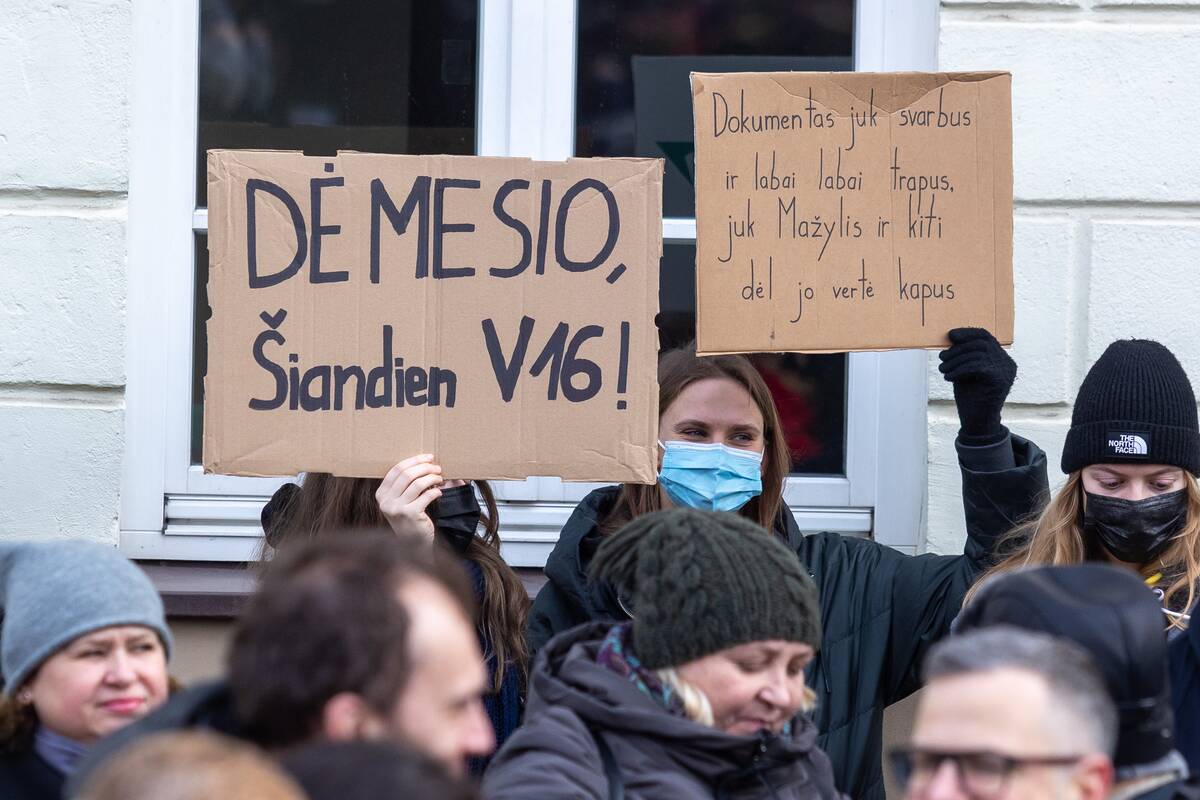 DĖMESIO,
Šiandien V16!
Dokumentas juk svarbus
ir labai labai trapus,
juk Mažylis ir kiti
dėl jo vertė kapus
THE
NORTH
FACE